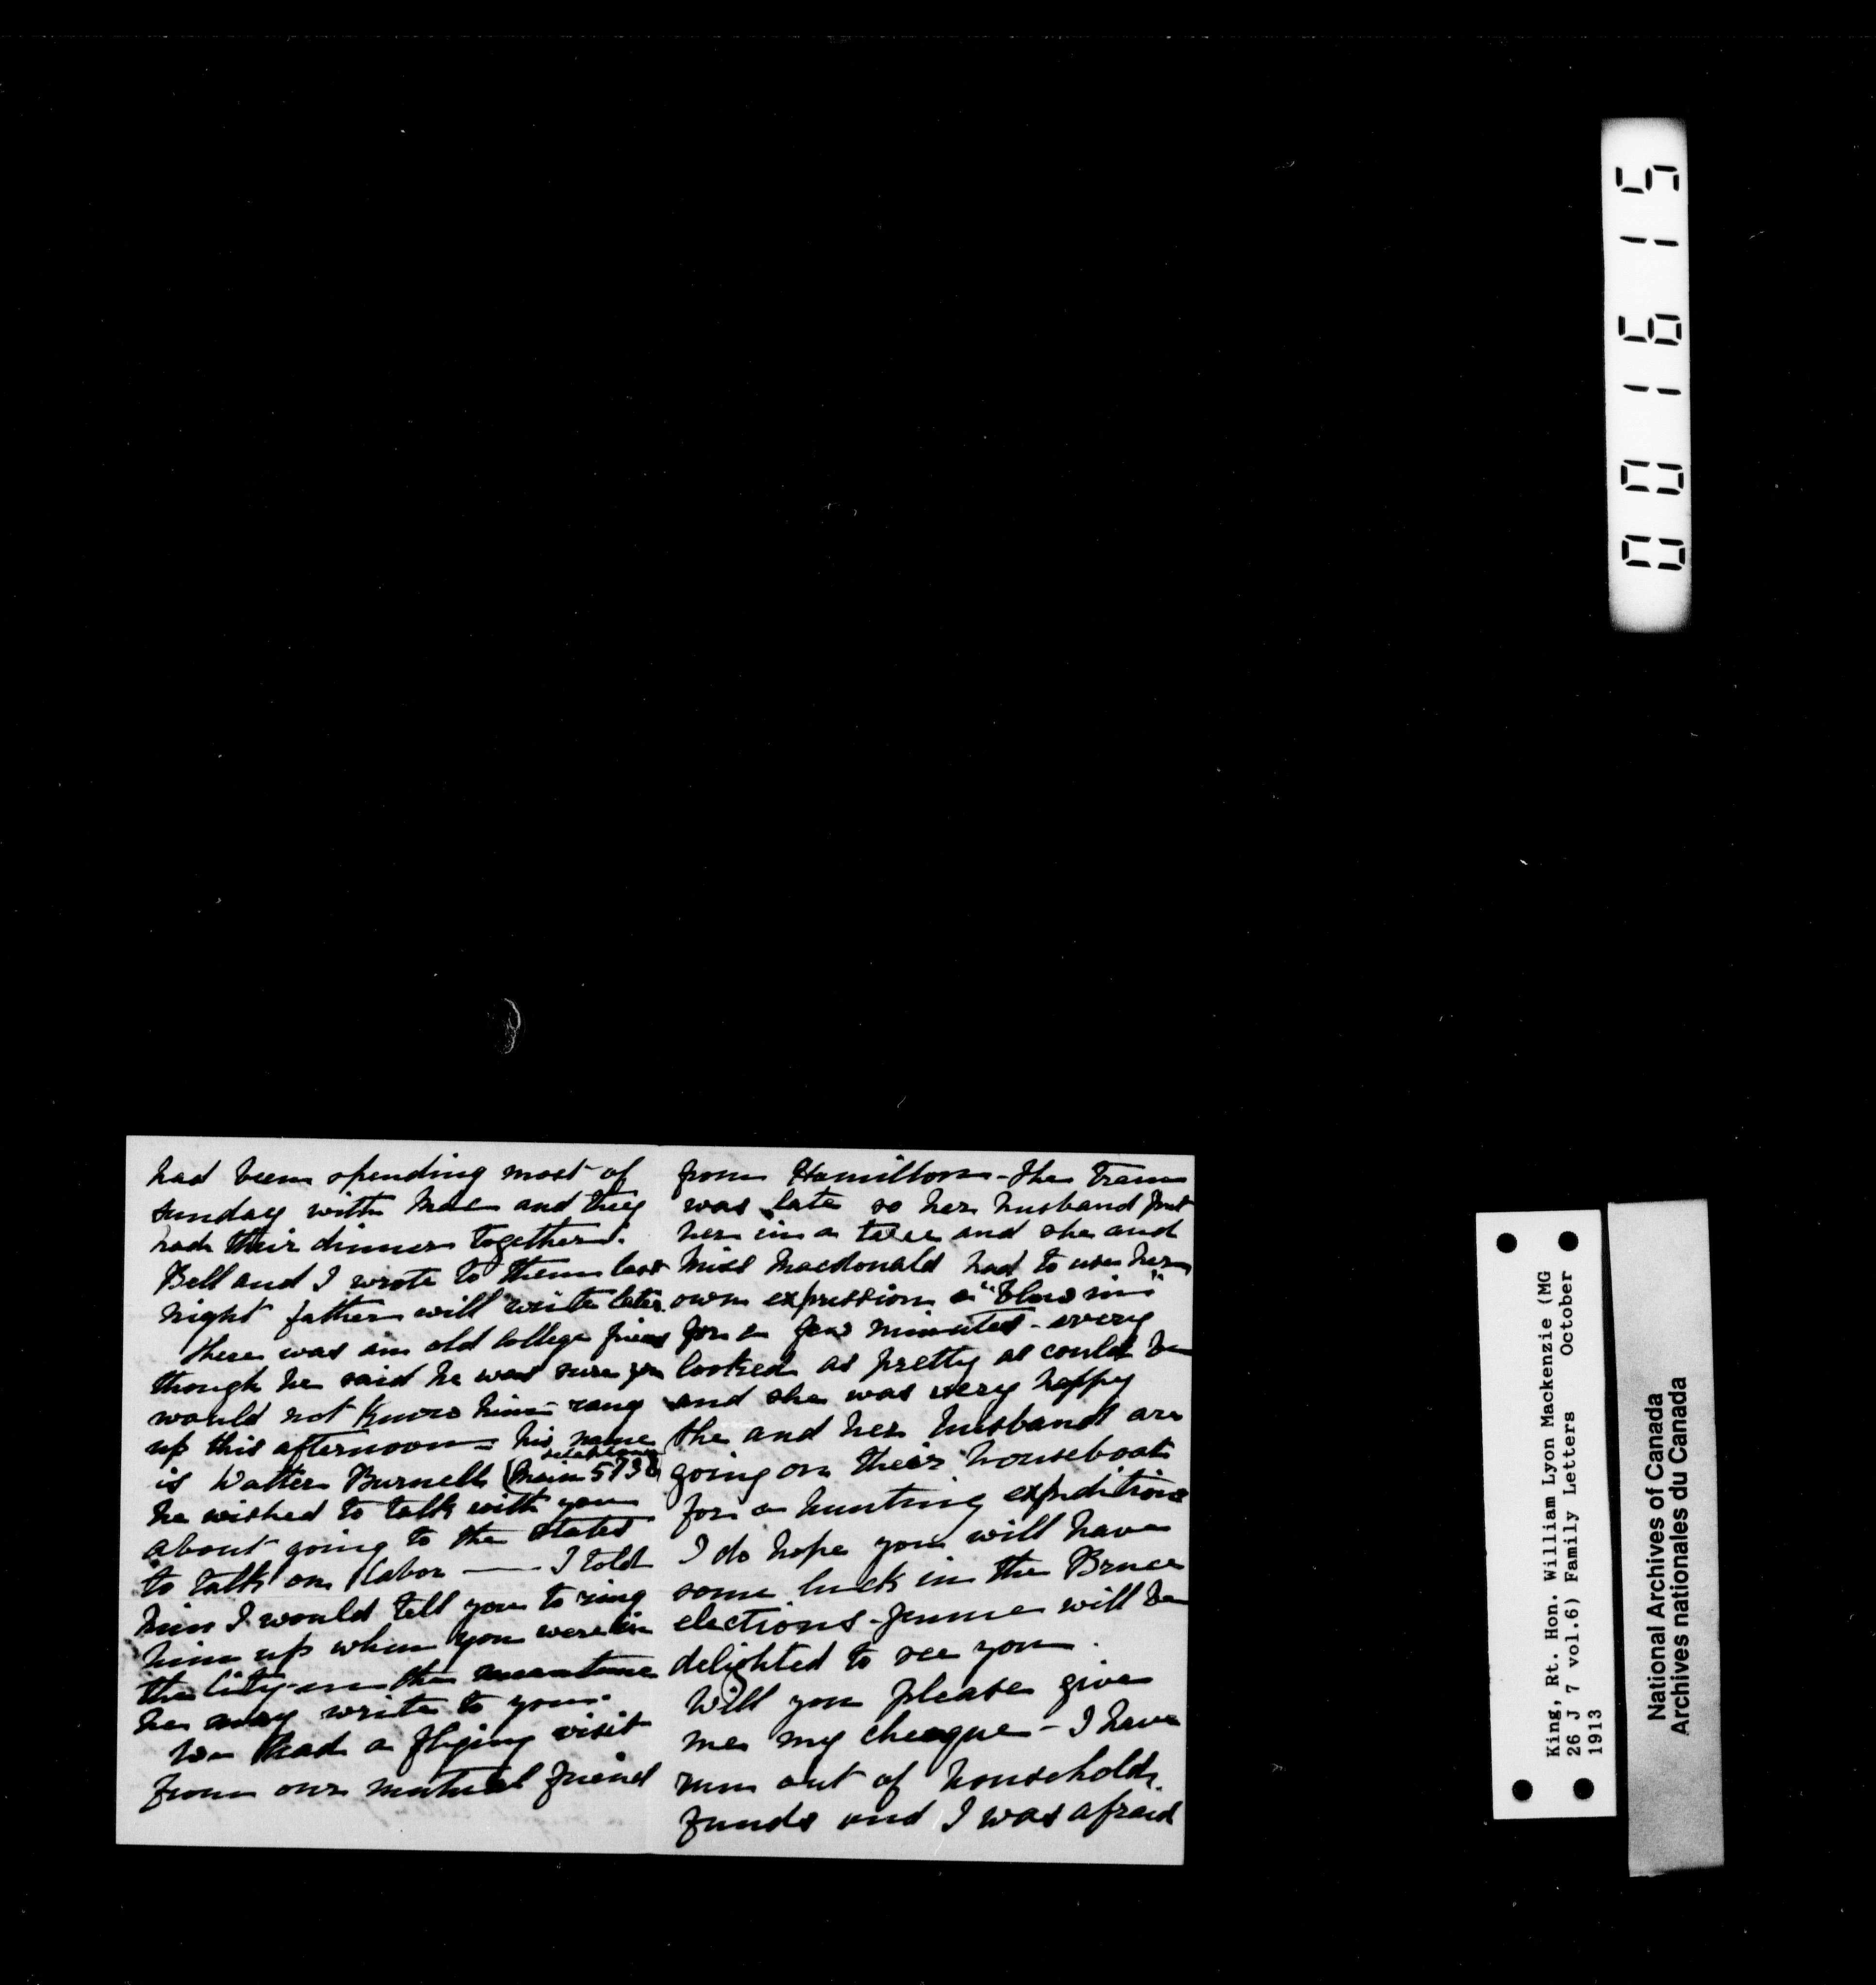 had been spending most of
Sunday with Mac and they
had their dinner together.
Bell and I wrote to them last
night father will write later.
There was an old college friend
though he said he was sure you
would not know him rang
up this afternoon - his name
is Walter Burnell (telephone Main 5736)
he wished to talk with you
about going to the States
to talk on labor — I told
him I would tell you to ring
him up when you were in
the city - in the meantime
he may write to you.
We had a flying visit
from our mutual friend
from Hamilton - the train
was late so her husband put
her in a taxi and she and
Miss Macdonald had to use her
own expression a "blow in"
for a few minutes - every
looked as pretty as could be
and she was very happy
She and her husband are
going on their houseboat
for a hunting expedition
I do hope you will have
some luck in the Bruce
elections - Jennie will be
delighted to see you.
Will you please give
me my cheaque - I have
run out of household
funds and I was afraid
001615
King, Rt. Hon. William Lyon Mackenzie (MG
26 J 7 vol.6) Family Letters October
1913
National Archives of Canada
Archives nationales du Canada